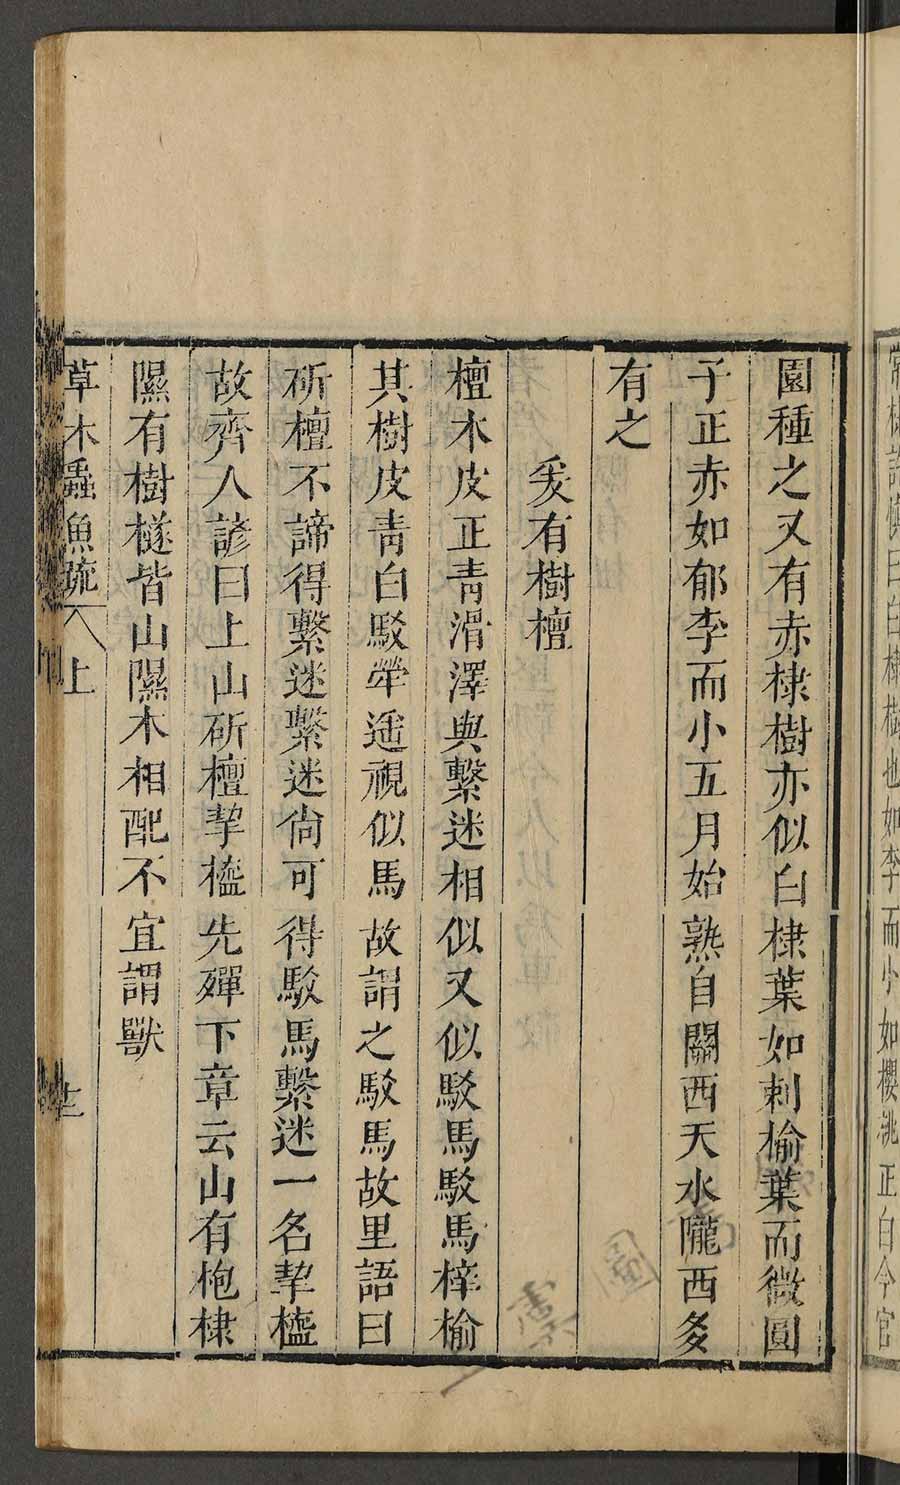 常棣許慎曰白棣樹也如李而小如櫻桃正白今官
園種之又有赤棣樹亦似白棣葉如刺榆葉而微圓
子正赤如郁李而小五月始熟自關西天水隴西多
有之
爰有樹檀
檀木皮正青滑澤與繫迷相似又似駮馬駮馬梓榆
其樹皮青白駮犖遥視似馬故謂之駮馬故里語曰
斫檀不諦得繫迷繫迷尚可得駮馬繫迷一名挈橀
故齊人諺曰上山斫檀挈橀先殫下章云山有枹棣
隰有樹檖皆山隰木相配不宜謂獸
草木蟲魚疏 上